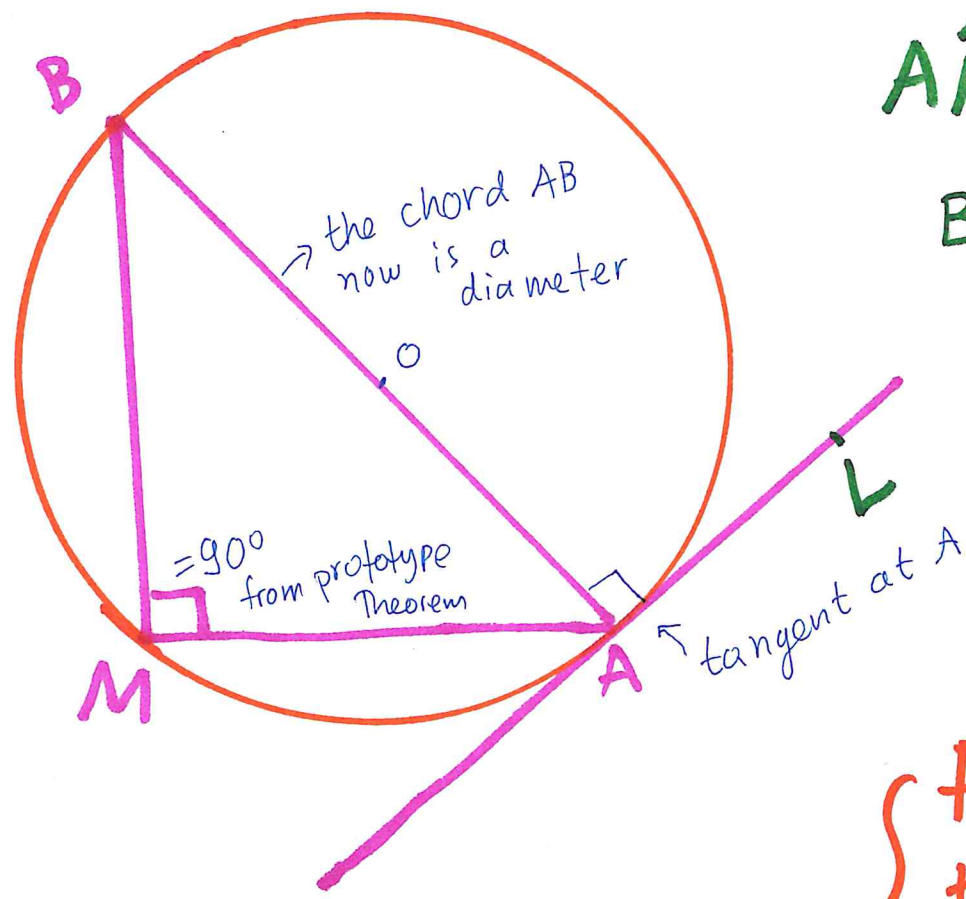 B
the chord AB
now is a
diameter
O
L
=90°
from prototype
Theorem
tangent at A
M
A